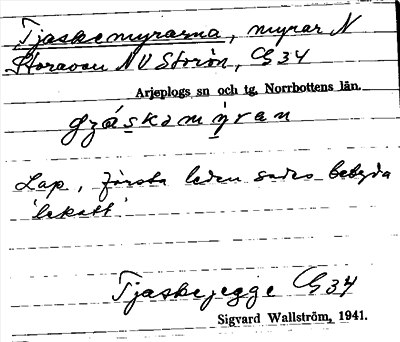 Tjaskemyrarna, myrar N
Storavan NV Storön, G34
Arjeplogs sn och tg, Norrbottens län.
gzáskamýran
Lap, första leden sades betyda
'lekatt'
Tjaskejegge G34
Sigvard Wallström, 1941.